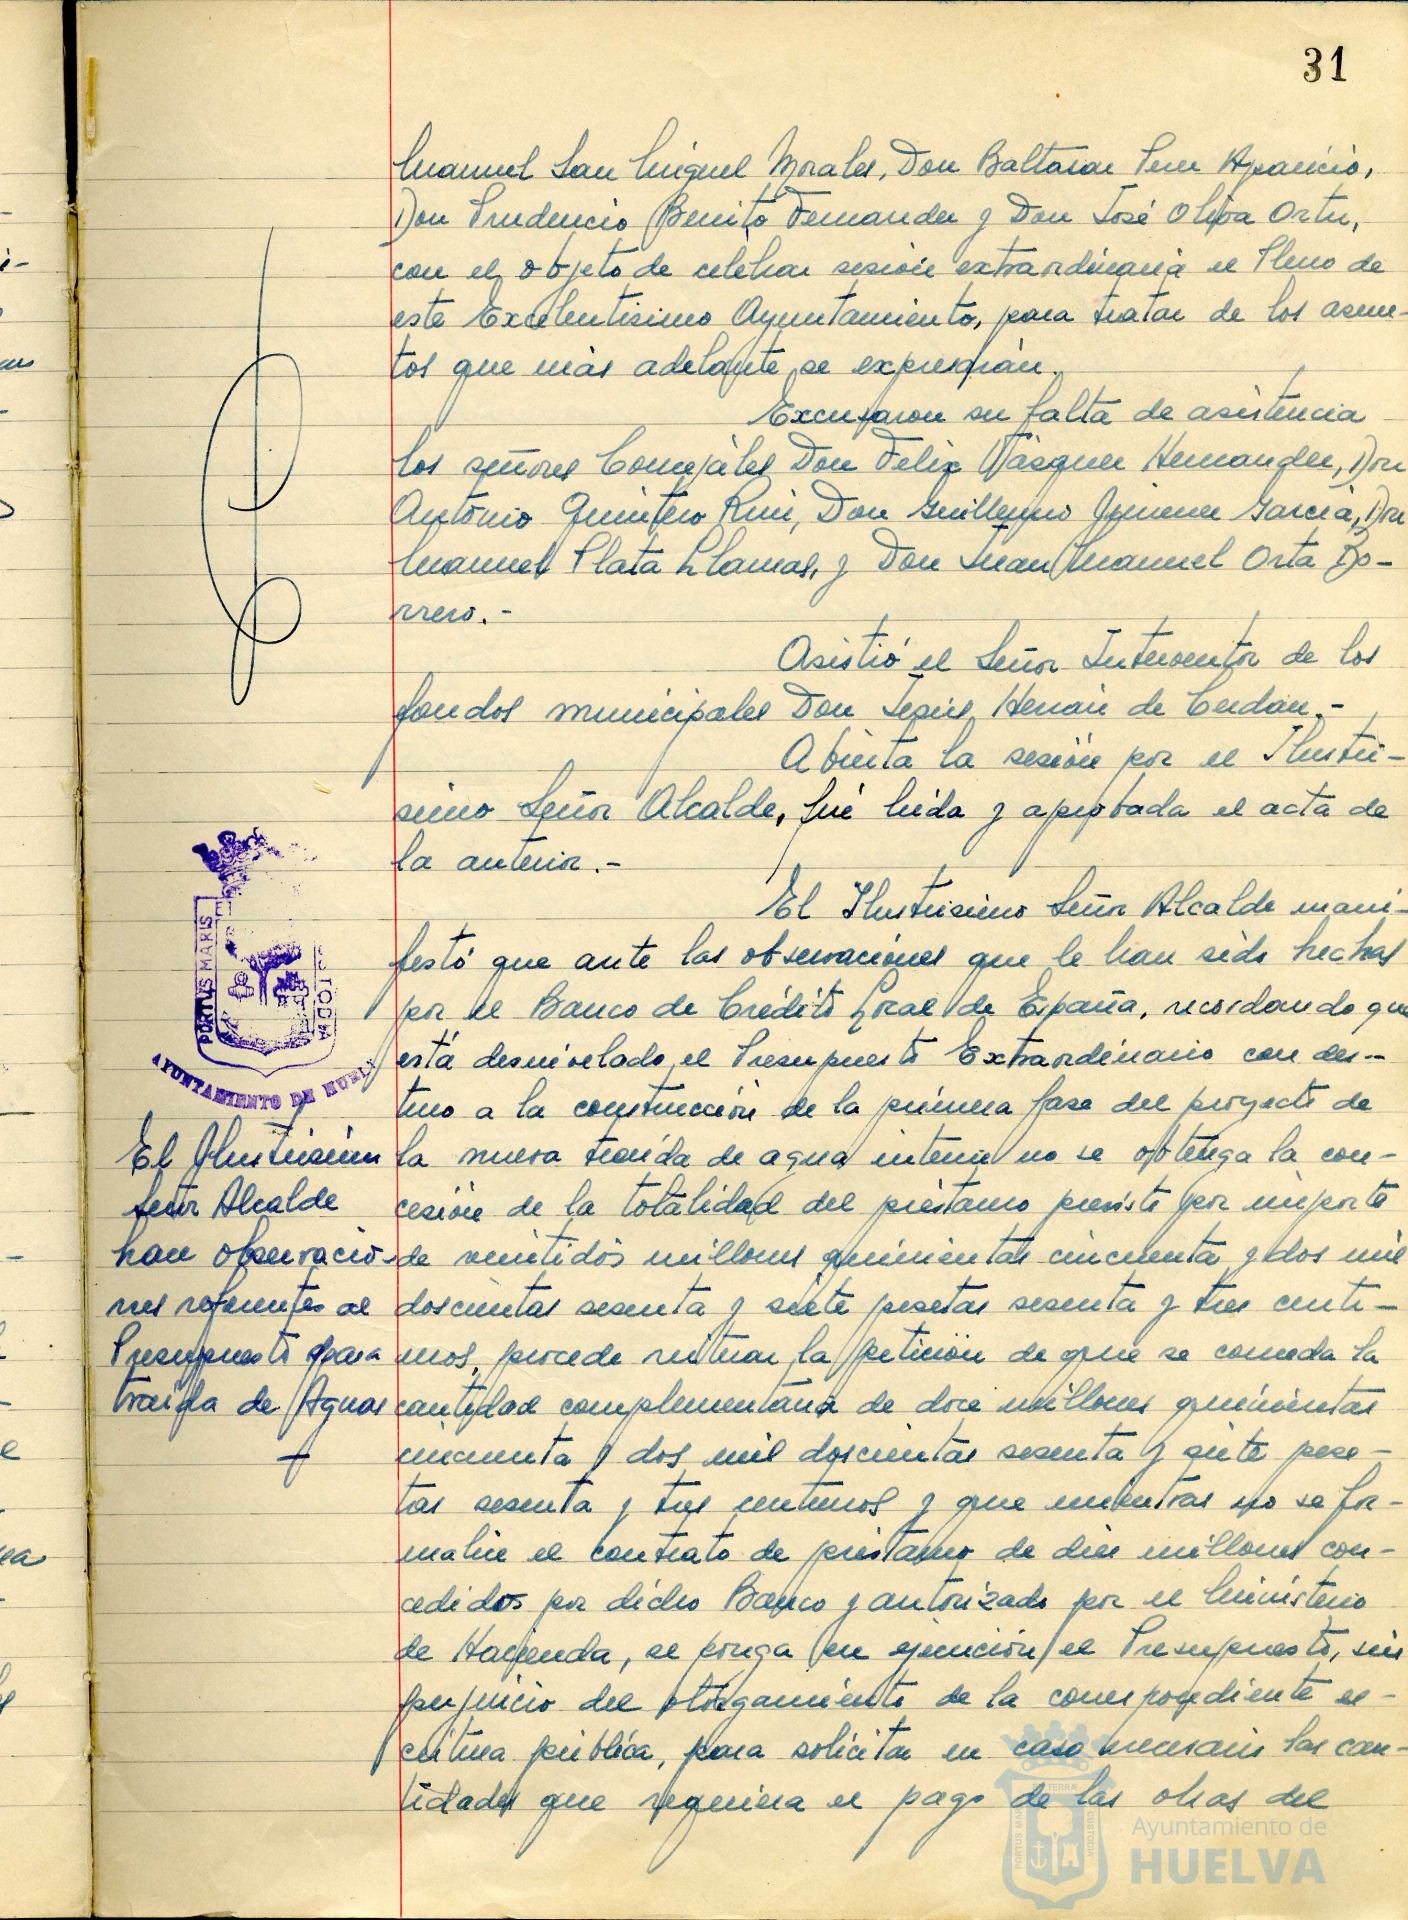 31
Manuel San Miguel Morales, Don Baltasar Aparicio,
Don Prudencio Benito Fernandez y Don José Oliva Ortiz,
con el objeto de celebrar sesión extraordinaria el Pleno de
este Excelentisimo Ayuntamiento, para tratar de los asun-
tos que más adelante se expresarán.
Excusaron su falta de asistencia
los señores Concejales Don Felix Vásquez Hernandez, Don
Antonio Quintero Ruiz, Don Guillermo Jimenez Garcia, Don
Manuel Plata Llamas, y Don Juan Manuel Orta Bo-
rrero.-
Asistió el Señor Interventor de los
fondos municipales Don Jesús Hernán de Cerdan.-
Abierta la sesión por el Ilustri-
simo Señor Alcalde, fué leida y aprobada el acta de
la anterior.-
El Ilustrisimo Señor Alcalde mani-
festó que ante las observaciones que le han sido hechas
por el Banco de Crédito Local de España, recordando que
está desnivelado el Presupuesto Extraordinario con des-
tino a la construcción de la primera fase del proyecto de
la nueva traida de agua interin no se obtenga la con-
cesión de la totalidad del préstamo previsto por importe
de veintidós millones quinientas cincuenta y dos mil
doscientas sesenta y siete pesetas sesenta y tres centi-
mos, procede reiterar la petición de que se conceda la
cantidad complementaria de doce millones quinientas
cincuenta y dos mil doscientas sesenta y siete pese-
tas sesenta y tres centimos y que mientras no se for-
malice el contrato de préstamo de diez millones con-
cedidos por dicho Banco y autorizado por el Ministerio
de Hacienda, se ponga en ejecución el Presupuesto, sin
perjuicio del otorgamiento de la correspondiente es-
critura pública, para solicitar en caso necesario las can-
tidades que requiera el pago de las obras del
PORTUS MARIS
CUSTODIA
AYUNTAMIENTO DE HUELVA
El Ilustrisimo
Señor Alcalde
han observacio-
nes referentes al
Presupuesto para
traida de Aguas
PORTUS MARIS
ET TERRÆ
CUSTODIA
Ayuntamiento de
HUELVA